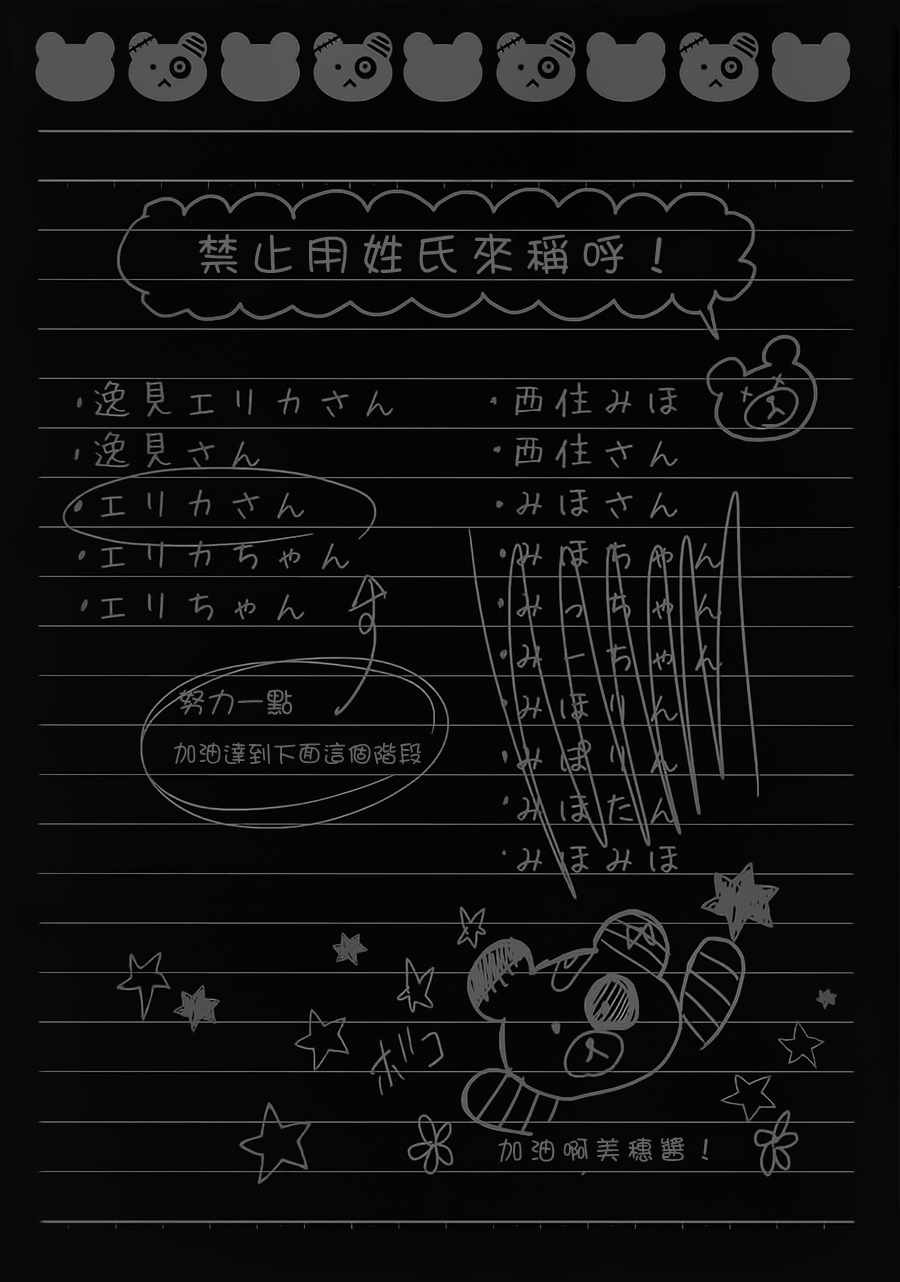 禁止用姓氏來稱呼！
・逸見エリカさん
・逸見さん
・エリカさん
・エリカちゃん
・エリちゃん
・西住みほ
・西住さん
・みほさん
・みほちゃん
・みっちゃん
・みーちゃん
・みほりん
・みぽりん
・みほたん
・みほみほ
努力一點
加油達到下面這個階段
ボコ
加油啊美穗醬！